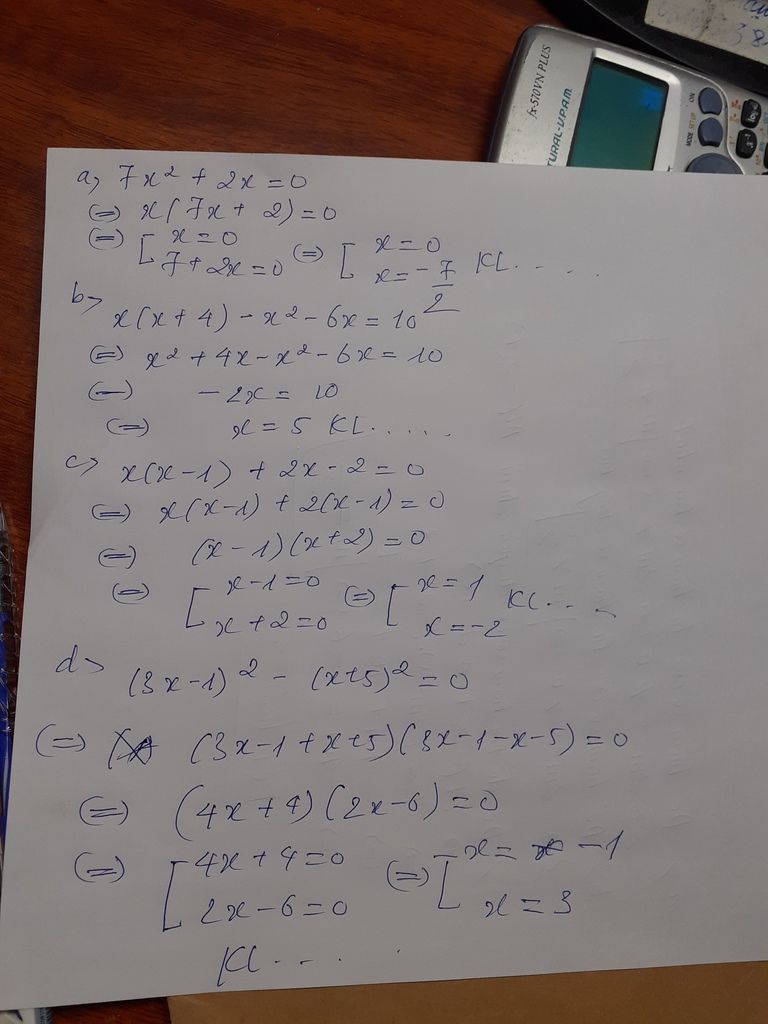 fx-570VN PLUS
NATURAL-V.P.A.M.
ON
MODE SETUP
38
a) 7x² + 2x = 0
(=) x(7x + 2) = 0
(=) [ x = 0
7 + 2x = 0 (=) [ x = 0
x = -7/2 KL.....
b)
x(x + 4) - x² - 6x = 10
(=) x² + 4x - x² - 6x = 10
(=) -2x = 10
(=) x = 5 KL.....
c) x(x-1) + 2x - 2 = 0
(=) x(x-1) + 2(x-1) = 0
(=) (x-1)(x+2) = 0
(=) [ x-1 = 0
x+2 = 0 (=) [ x = 1
x = -2 KL....
d)
(3x-1)² - (x+5)² = 0
(=) (3x-1+x+5)(3x-1-x-5) = 0
(=) (4x+4)(2x-6) = 0
(=) [ 4x+4 = 0
2x-6 = 0 (=) [ x = -1
x = 3
KL....